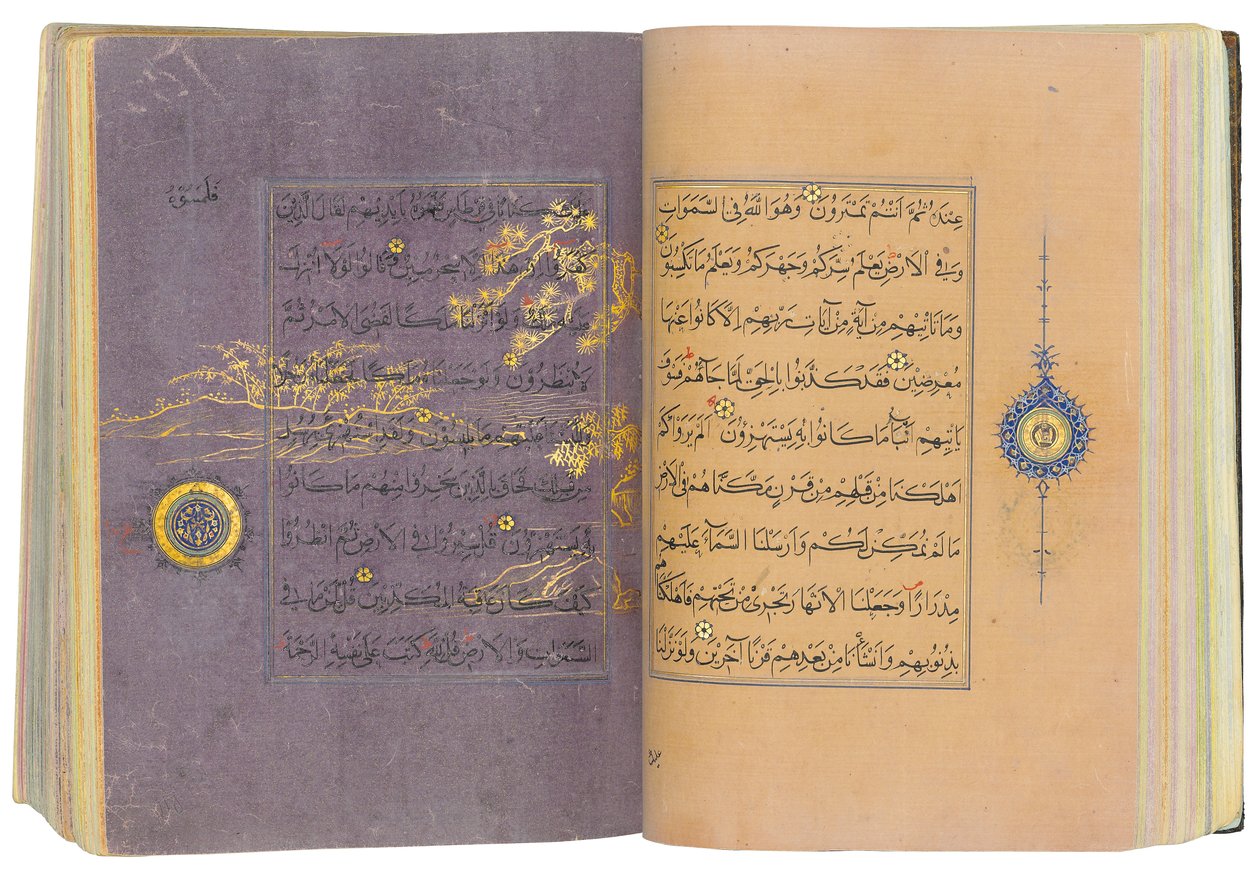 عِنْدَهُ ثُمَّ اَنْتُمْ تَمْتَرُونَ وَهُوَ اللّٰهُ فِى السَّمَوَاتِ
وَفِى الْاَرْضِ يَعْلَمُ سِرَّكُمْ وَجَهْرَكُمْ وَيَعْلَمُ مَا تَكْسِبُونَ
وَمَا تَاْتِيْهِمْ مِنْ آيَةٍ مِنْ آيَاتِ رَبِّهِمْ اِلَّا كَانُوا عَنْهَا
مُعْرِضِيْنَ فَقَدْ كَذَّبُوا بِالْحَقِّ لَمَّا جَآءَهُمْ فَسَوْفَ
يَاْتِيْهِمْ اَنْبَآءُ مَا كَانُوا بِهِ يَسْتَهْزِؤُنَ اَلَمْ يَرَوْا كَمْ
اَهْلَكْنَا مِنْ قَبْلِهِمْ مِنْ قَرْنٍ مَكَّنَّاهُمْ فِى الْاَرْضِ
مَا لَمْ نُمَكِّنْ لَكُمْ وَاَرْسَلْنَا السَّمَآءَ عَلَيْهِمْ
مِدْرَارًا وَجَعَلْنَا الْاَنْهَارَ تَجْرِىْ مِنْ تَحْتِهِمْ فَاَهْلَكْنَاهُمْ
بِذُنُوبِهِمْ وَاَنْشَأْنَا مِنْ بَعْدِهِمْ قَرْنًا آخَرِيْنَ وَلَوْ نَزَّلْنَا
عليك
فَلَمَسُوْهُ
عَلَيْكَ كِتَابًا فِي قِرْطَاسٍ فَلَمَسُوْهُ بِاَيْدِيْهِمْ لَقَالَ الَّذِيْنَ
كَفَرُوا اِنْ هٰذَا اِلَّا سِحْرٌ مُبِيْنٌ وَقَالُوا لَوْلَا اُنْزِلَ
عَلَيْهِ مَلَكٌ وَلَوْ اَنْزَلْنَا مَلَكًا لَقُضِيَ الْاَمْرُ ثُمَّ
لَا يُنْظَرُوْنَ وَلَوْ جَعَلْنَاهُ مَلَكًا لَجَعَلْنَاهُ رَجُلًا
وَلَلَبَسْنَا عَلَيْهِمْ مَا يَلْبِسُوْنَ وَلَقَدِ اسْتُهْزِئَ بِرُسُلٍ
مِنْ قَبْلِكَ فَحَاقَ بِالَّذِيْنَ سَخِرُوا مِنْهُمْ مَا كَانُوْا
بِهِ يَسْتَهْزِؤُنَ قُلْ سِيْرُوْا فِي الْاَرْضِ ثُمَّ انْظُرُوْا
كَيْفَ كَانَ عَاقِبَةُ الْمُكَذِّبِيْنَ قُلْ لِمَنْ مَا فِي
السَّمَوَاتِ وَالْاَرْضِ قُلْ لِلّٰهِ كَتَبَ عَلَى نَفْسِهِ الرَّحْمَةَ